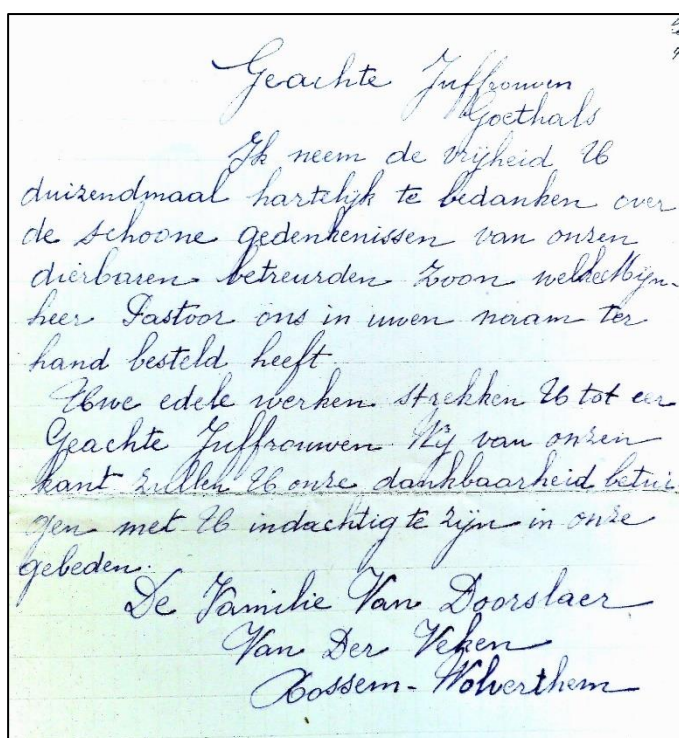 Geachte Juffrouwen
Goethals
Ik neem de vrijheid U
duizendmaal hartelijk te bedanken over
de schoone gedenkenissen van onzen
dierbaren betreurden zoon welke Mijn-
heer Pastoor ons in uwen naam ter
hand besteld heeft.
Uwe edele werken strekken U tot eer
Geachte Juffrouwen Wij van onzen
kant zullen U onze dankbaarheid betui
gen met U indachtig te zijn in onze
gebeden.
De Familie Van Doorslaer
Van Der Veken
Rossem-Wolverthem